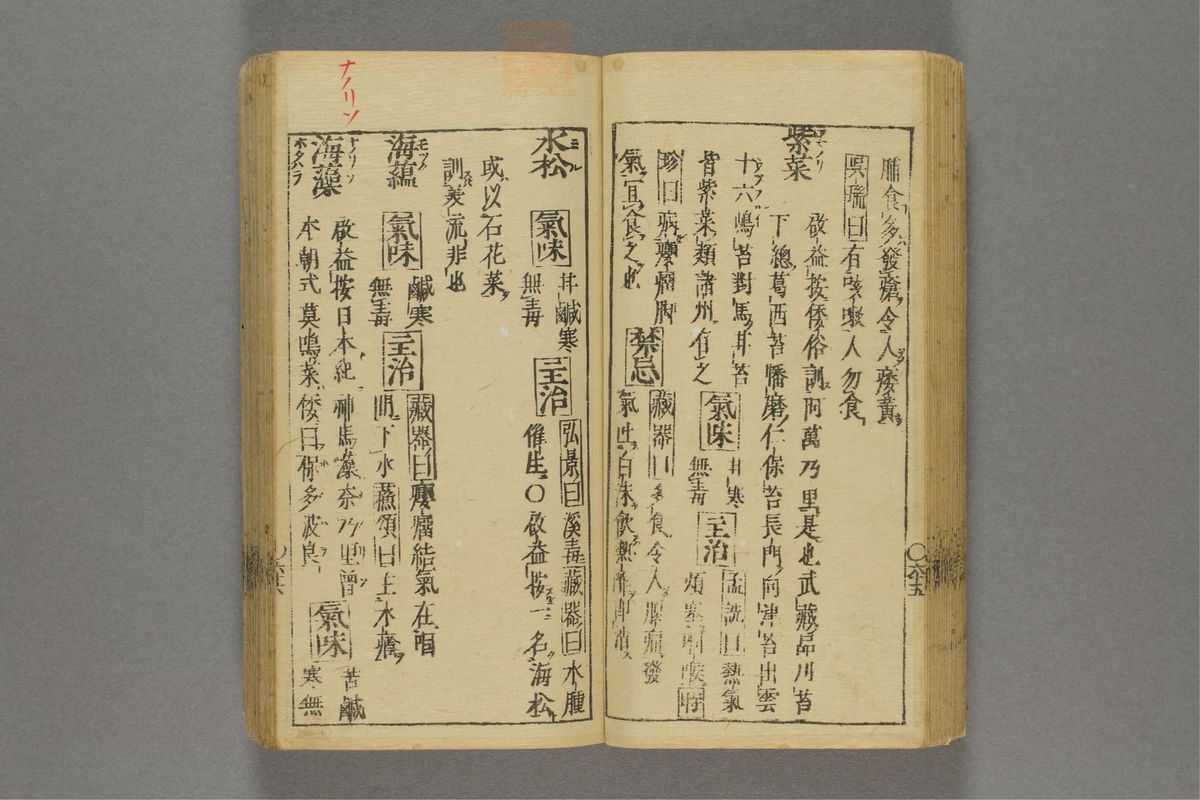 脯食多發瘡令人痿黃
吳瑞曰有咳嗽人勿食
紫菜
啟益按倭俗訓阿萬乃里是也武藏品川苔
下總葛西苔幡磨仁保苔長門向津苔出雲
十六嶋苔對馬耳苔
皆紫菜類諸州有之
氣味
甘寒
無毒
主治
孟詵曰熱氣
煩塞咽喉時
珍曰病癭瘤脚
氣宜食之也
禁忌
藏器曰多食令人腹痛發
氣吐白沫飲熱醋即消
六十五
水松
ミル
氣味
甘鹹寒
無毒
主治
弘景曰溪毒藏器曰水腫
催生〇啟益按一名海松
或以石花菜
訓美流非也
海蘊
モツク
氣味
鹹寒
無毒
主治
藏器曰癭瘤結氣在咽
間下水蘇頌曰主水癊
ナノリソ
海藻
ナノリソ
ホタハラ
啟益按日本紀神馬藻奈乃里曾
本朝式莫鳴菜倭曰保多波良
氣味
苦鹹
寒無
六十六